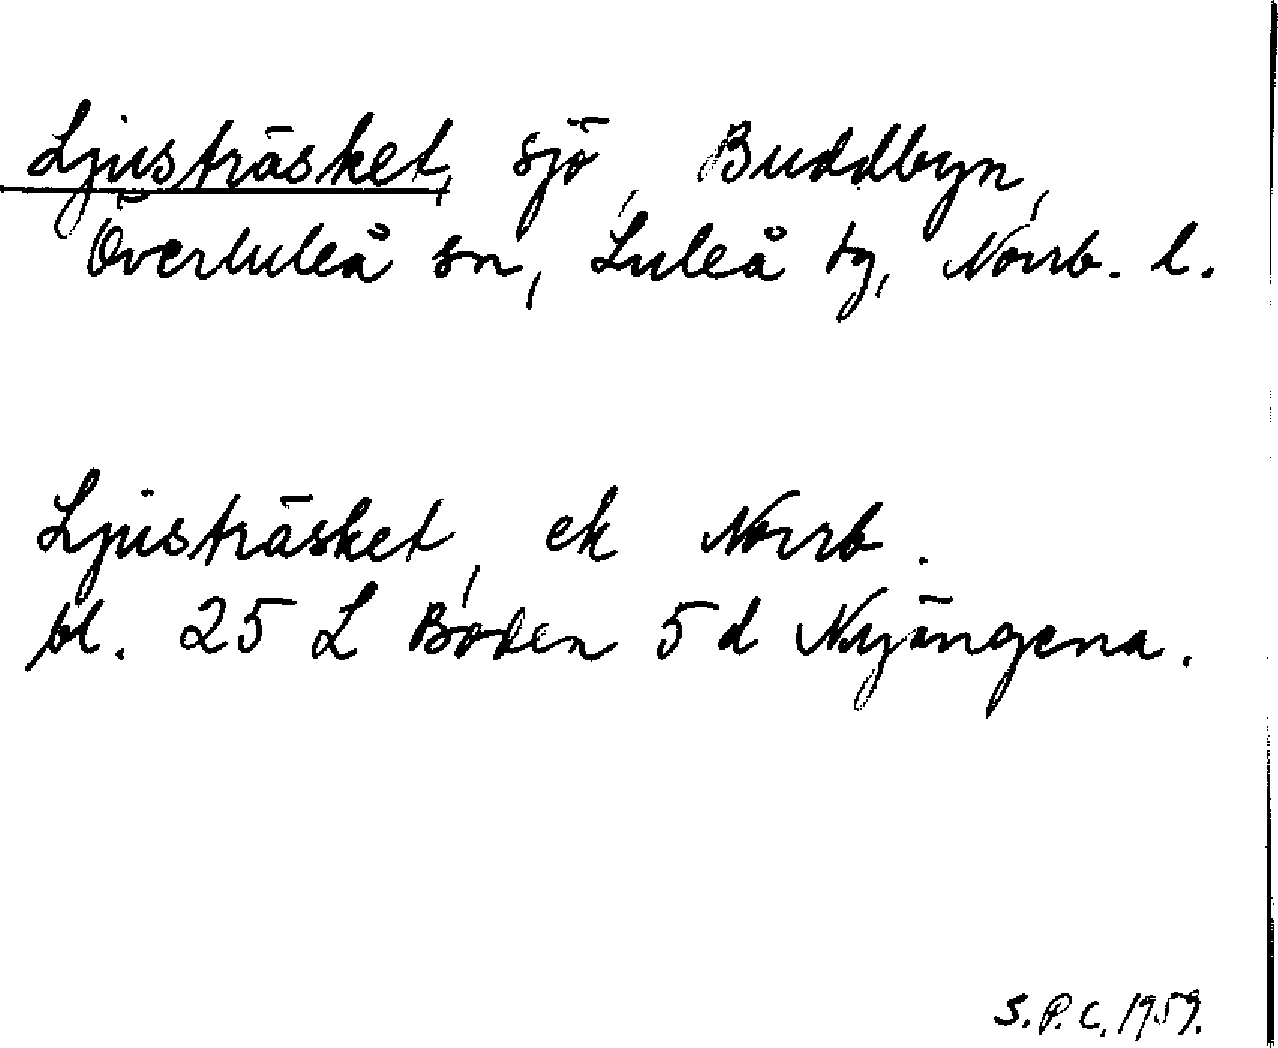 Ljusträsket, sjö, Buddbyn,
Överluleå sn, Luleå tg, Norrb. l.
Ljusträsket, ek Norrb.
bl. 25 L Boden 5 d Nyängena.
S.P.C. 1959.